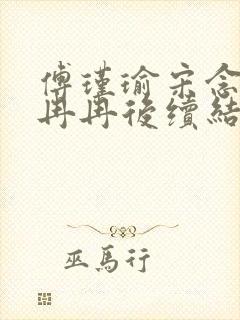 傅瑾瑜宋念
冉冉後續結
巫馬行